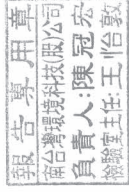 報告專用章
南台灣環境科技(股)公司
負責人:陳冠宏
檢驗室主任:王怡敦